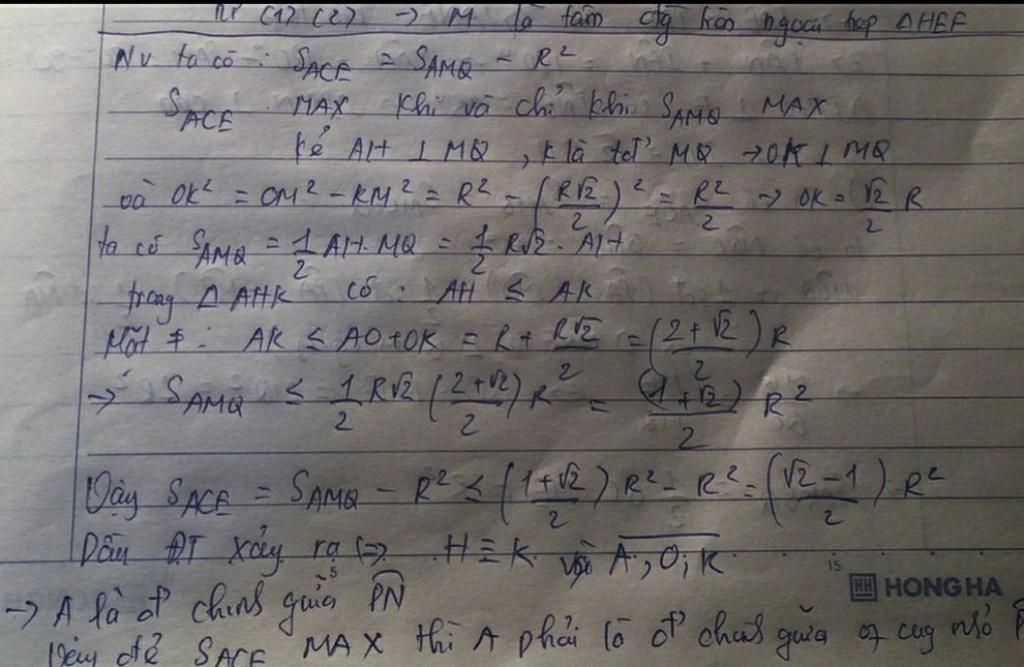 (1) (2) → M là tâm đg tròn ngoại tiếp ΔHEF
Nv ta có : S_ACE = S_AMQ - R²
S_ACE MAX khi và chỉ khi S_AMQ MAX
kẻ AH ⊥ MQ , K là tđ' MQ → OK ⊥ MQ
và OK² = OM² - KM² = R² - (R√2/2)² = R²/2 → OK = √2/2 R
ta có S_AMQ = 1/2 AH. MQ = 1/2 R√2 . AH
trong Δ AHK có : AH ≤ AK
Mặt ≠ : AK ≤ AO+OK = R + R√2/2 = (2+√2/2) R
→ S_AMQ ≤ 1/2 R√2 (2+√2/2) R = (1+√2)/2 R²
Vậy S_ACE = S_AMQ - R² ≤ (1+√2/2) R² - R² = (√2-1/2) R²
Dấu ĐT xảy ra (=) H ≡ K và A, O, K
15
HH HONG HA
5
→ A là đ' chính giữa PN
S_ACE MAX thì A phải là đ' chính giữa of cug nhỏ P